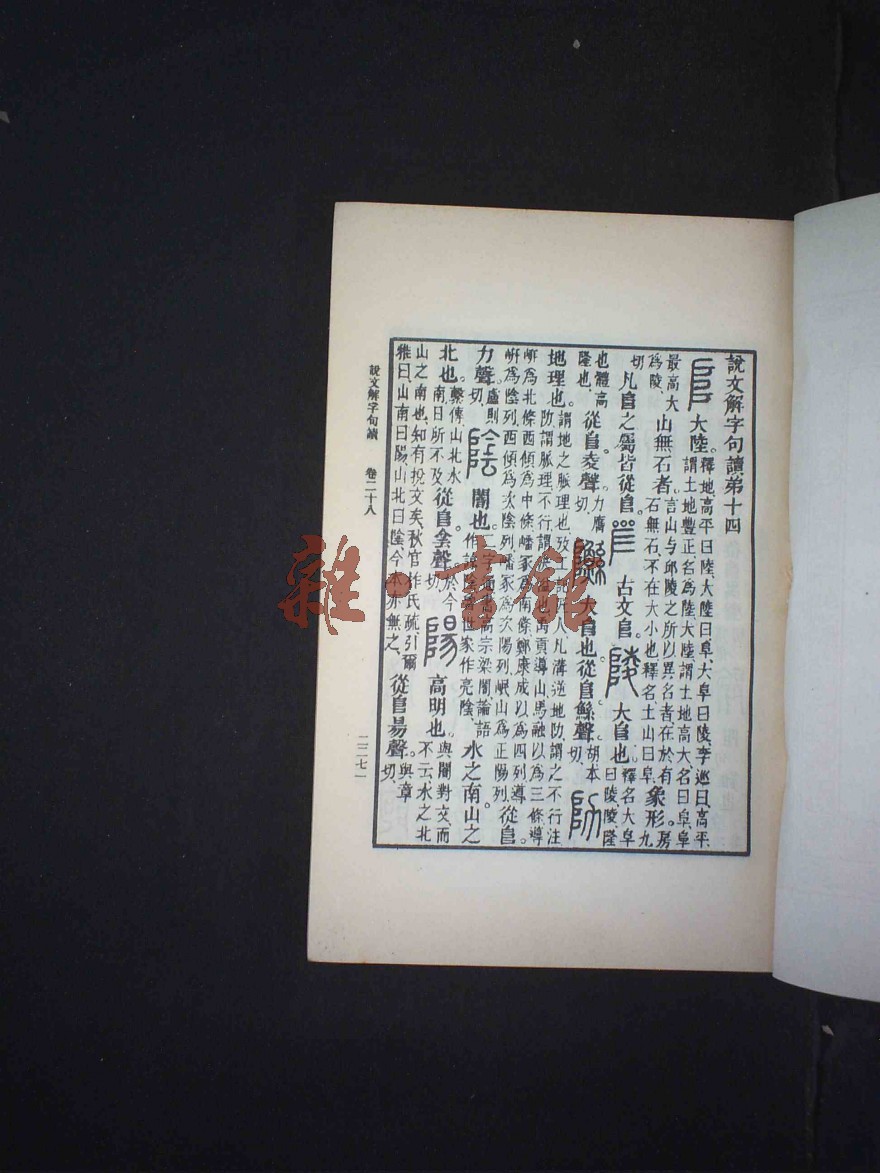 說文解字句讀弟十四
𨸏 大陸。釋地、高平曰陸、大陸曰阜、大阜曰陵、李巡曰、高平、
謂土地豐正名爲陸、大陸謂土地高大名曰阜、阜
最高大爲陵、山無石者。言山与邱陵之所以異名者、在於有
石無石、不在大小也、釋名土山曰阜、象形。房九
切、凡𨸏之屬皆從𨸏。古文𨸏。陵 大𨸏也。釋名大阜
曰陵、陵隆
也、體高隆也、從𨸏夌聲。力膺切、大𨸏也。從𨸏鯀聲。胡本切、阞
地理也。謂地之脈理也、攷 人凡溝逆地阞、謂之不行、注
阞、謂脈理、不行謂 也、禹貢導山、馬融以爲三條、導
岍爲北條、西傾爲中條、嶓冢爲南條、鄭康成以爲四列、導
岍爲陰列、西傾爲次陰列、嶓冢爲次陽列、岷山爲正陽列、從𨸏
力聲。盧則切、陰 闇也。高宗梁闇、論語
作 世家作亮陰、水之南、山之
北也。繫傳山北水
南、日所不及、從𨸏侌聲。於今切、陽 高明也。與闇對文、而
不云水之北
山之南也、知有挩文矣、秋官柞氏疏引爾
雅曰、山南曰陽、山北曰陰、今本亦無之、從𨸏昜聲。與章切、
說文解字句讀 卷二十八
二二七一
雜·書館